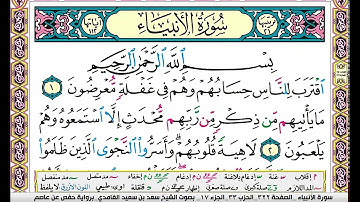 سُورَةُ الْأَنْبِيَاءِ
بِسْمِ اللَّهِ الرَّحْمَٰنِ الرَّحِيمِ
اقْتَرَبَ لِلنَّاسِ حِسَابُهُمْ وَهُمْ فِي غَفْلَةٍ مُّعْرِضُونَ ١
مَا يَأْتِيهِم مِّن ذِكْرٍ مِّن رَّبِّهِم مُّحْدَثٍ إِلَّا اسْتَمَعُوهُ وَهُمْ
يَلْعَبُونَ ٢ لَاهِيَةً قُلُوبُهُمْ وَأَسَرُّوا النَّجْوَى الَّذِينَ ظَلَمُوا
سورة الأنبياء - صفحة ٣٢٢ الجزء ١٧ بصوت الشيخ سعد بن سعيد الغامدي - برواية حفص عن عاصم